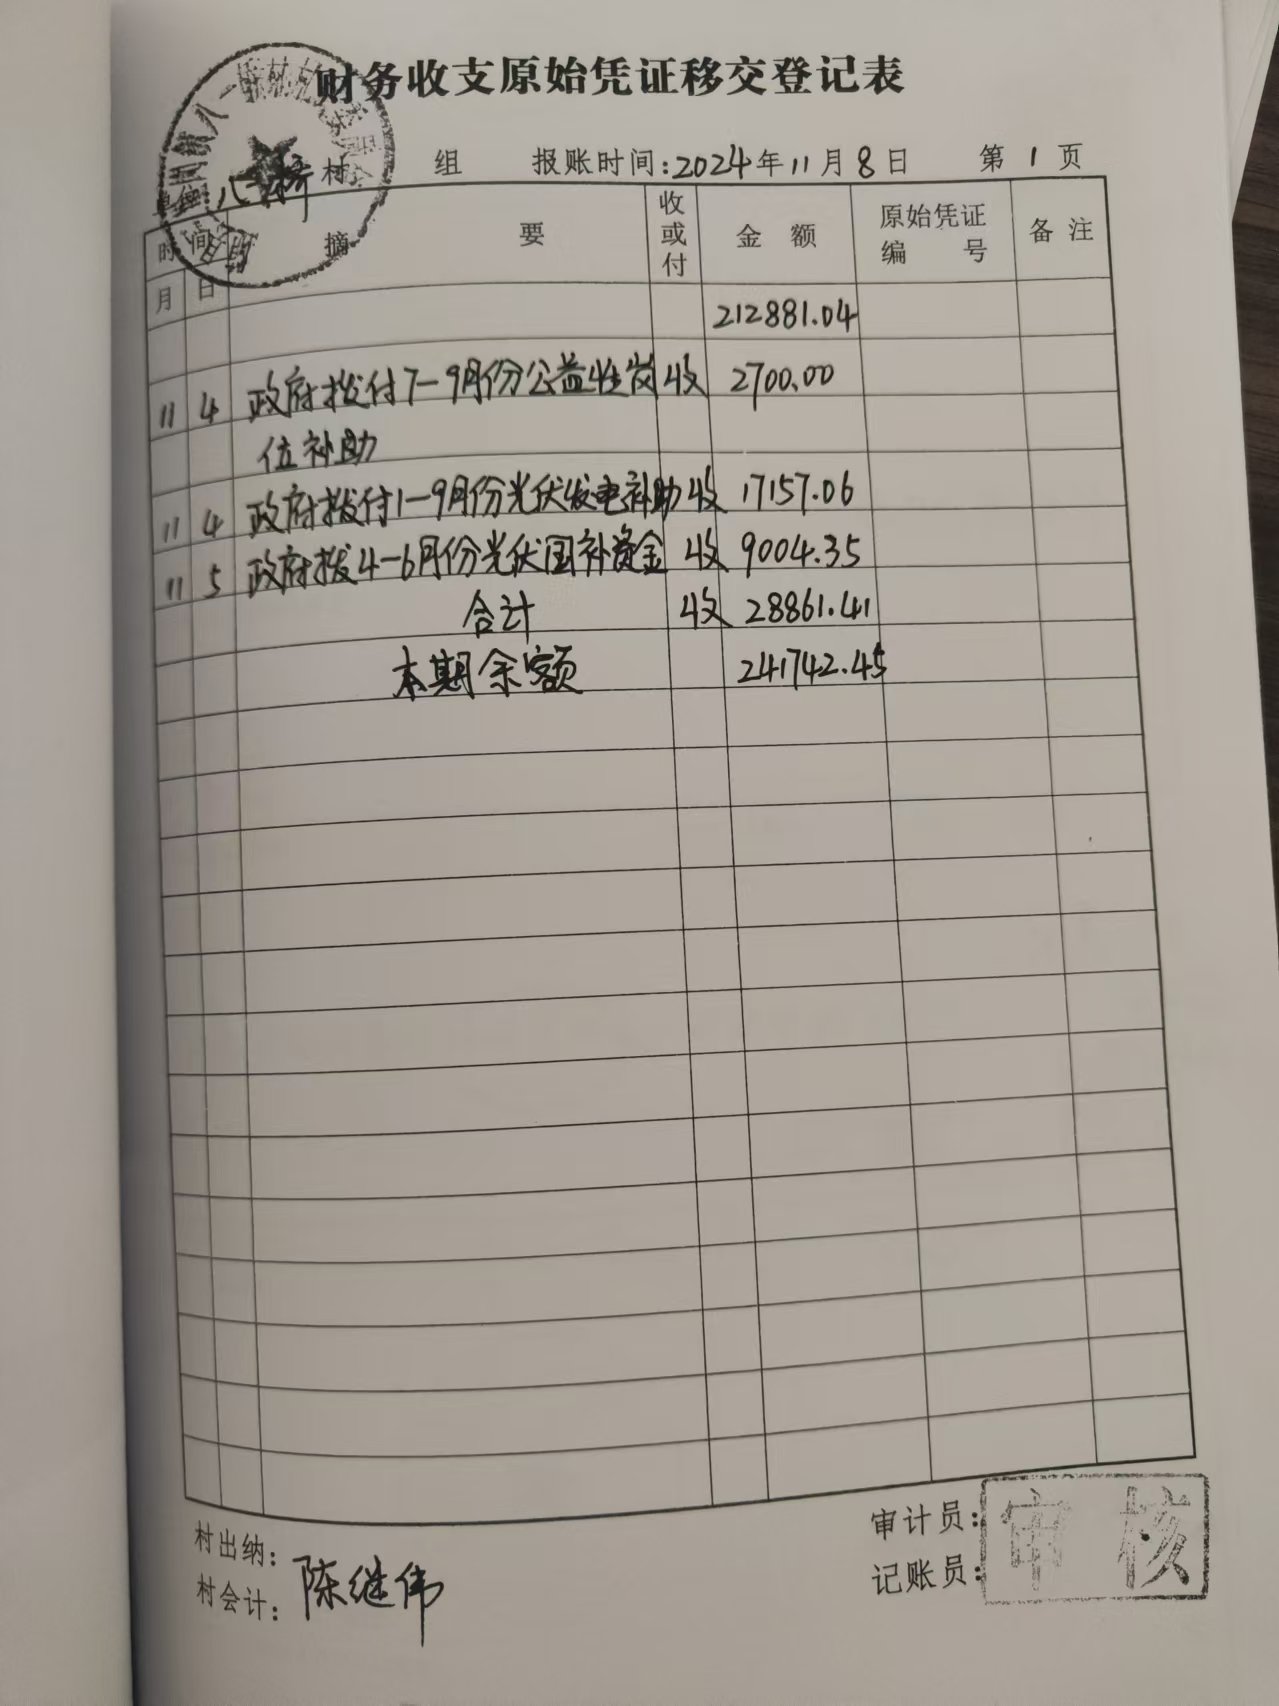 财务收支原始凭证移交登记表
单位:八一桥村 组 报账时间:2024年11月8日 第1页
时间 摘要 收或付 金额 原始凭证编号 备注
月 日
212881.04
11 4 政府拨付7-9月份公益性岗 收 2700.00
位补助
11 4 政府拨付1-9月份光伏发电补助 收 17157.06
11 5 政府拨4-6月份光伏国补资金 收 9004.35
合计 收 28861.41
本期余额 241742.45
村出纳:
村会计: 陈继伟
审计员:
记账员:
审核